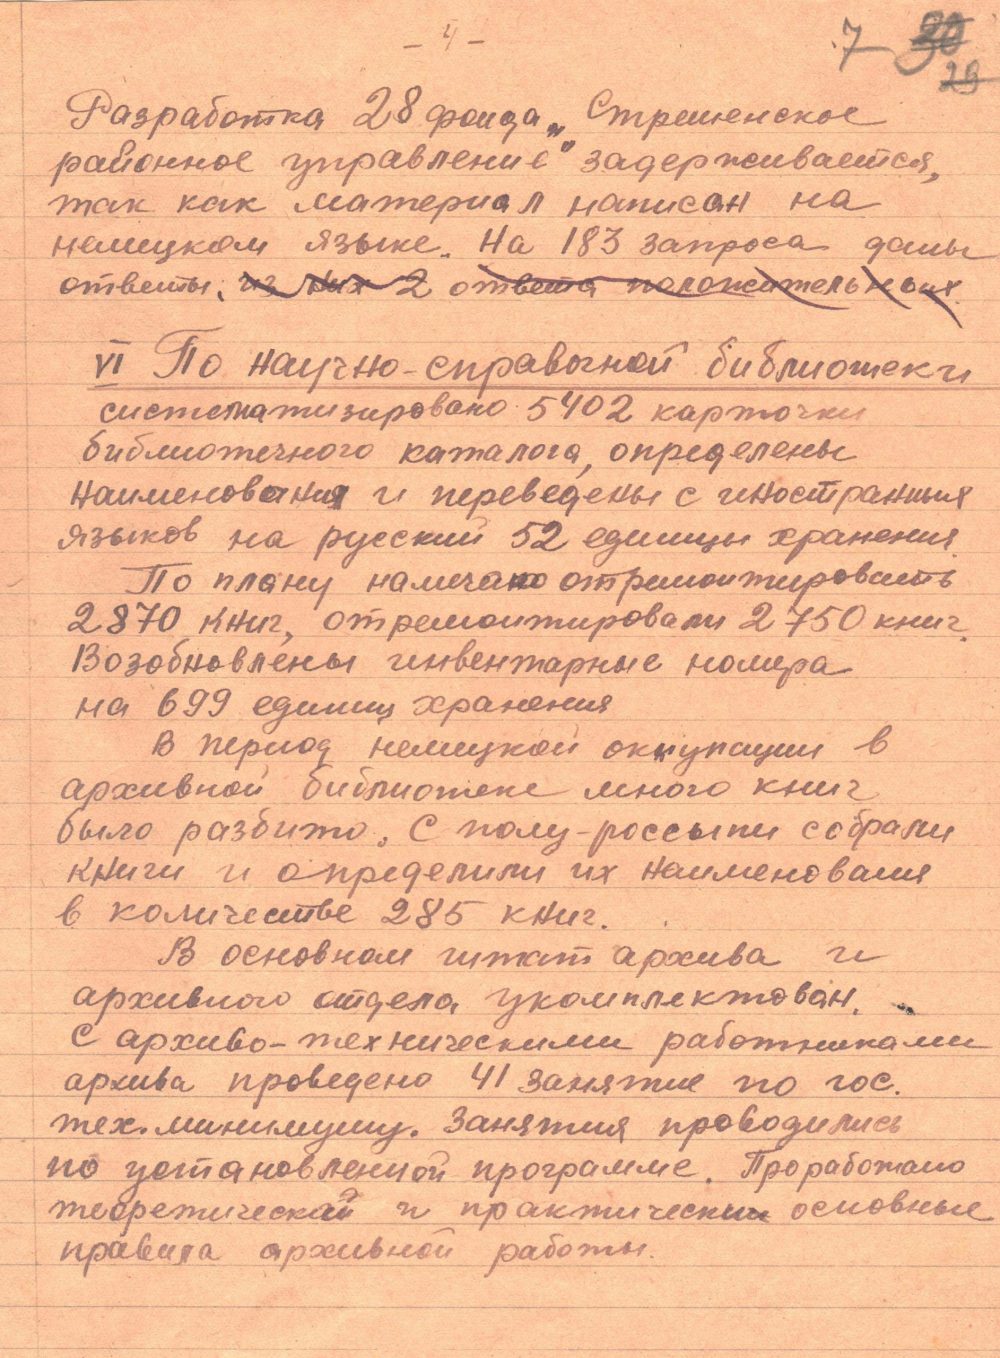 - 4 -
7 30
29
Разработка 28 фонда „Стрешенское
районное управление" задерживается,
так как материал написан на
немецком языке. На 183 запроса даны
ответы. из них 2 ответа положительных.
VI По научно-справочной библиотеке
систематизировано 5402 карточки
библиотечного каталога, определены
наименования и переведены с иностранных
языков на русский 52 единицы хранения.
По плану намечано отремонтировать
2870 книг, отремонтировали 2750 книг.
Возобновлены инвентарные номера
на 699 единиц хранения
В период немецкой оккупации в
архивной библиотеке много книг
было разбито. С полу-россыпи собрали
книги и определили их наименования
в количестве 285 книг.
В основном штат архива и
архивного отдела укомплектован.
С архиво-техническими работниками
архива проведено 41 занятие по гос.
тех.минимуму. Занятия проводились
по установленной программе. Проработано
теоретически и практически основные
правила архивной работы.